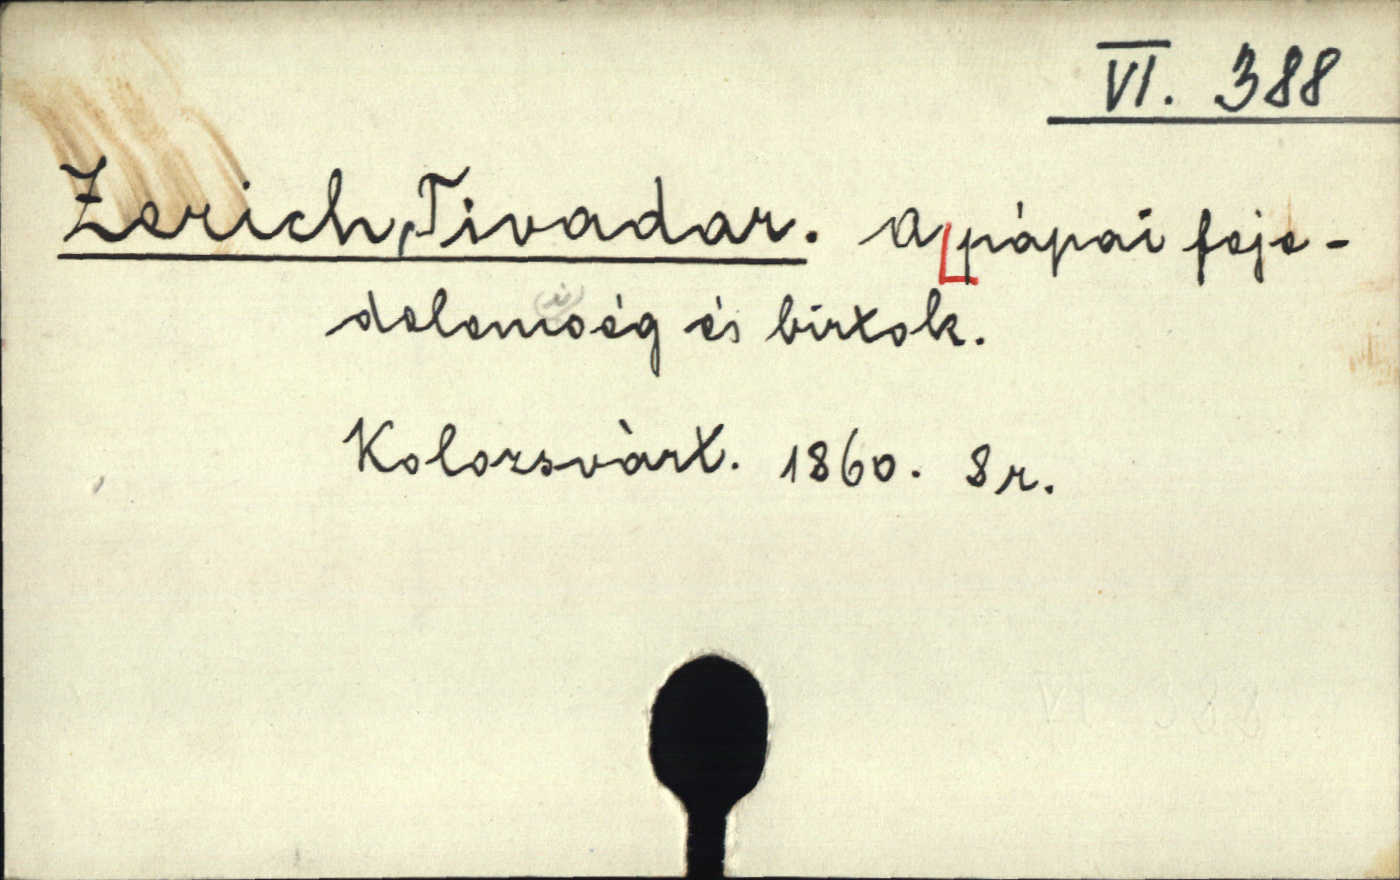 VI. 388
Zerich, Tivadar. A pápai feje-
delemség és birtok.
Kolozsvàrt. 1860. 8r.